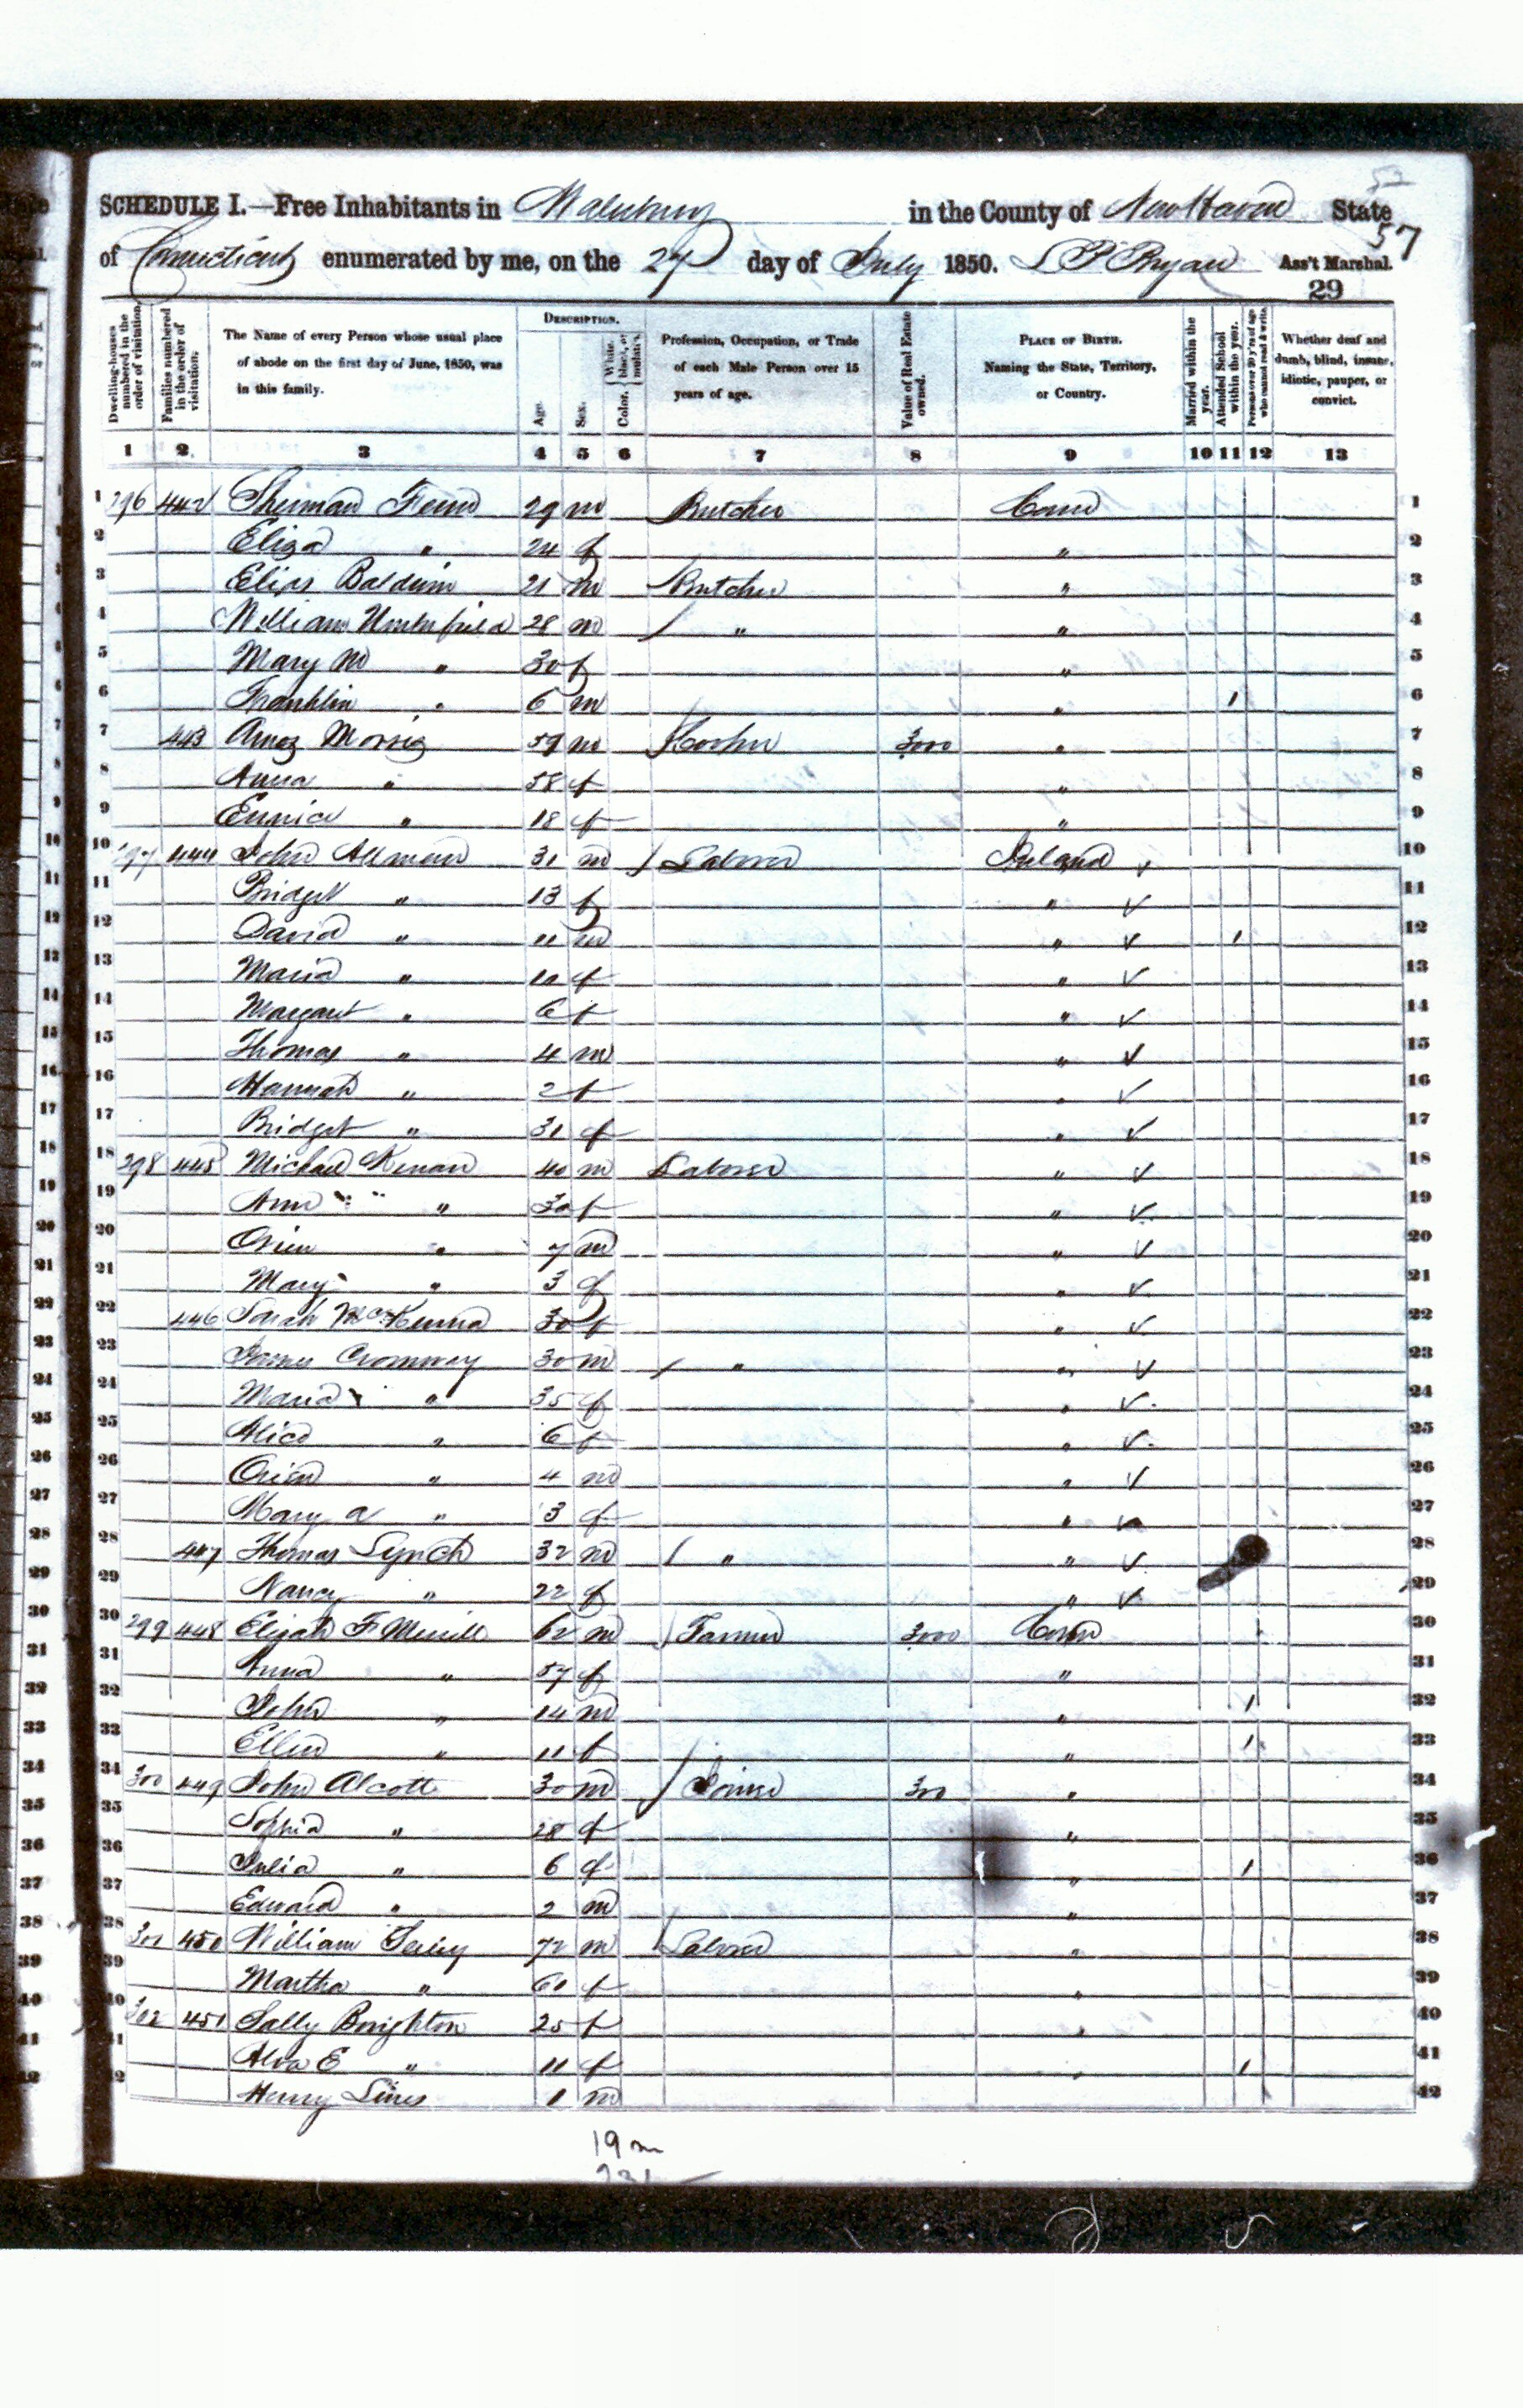 SCHEDULE I.—Free Inhabitants in Waterbury in the County of New Haven State
57
of Connecticut enumerated by me, on the 27 day of July 1850. S P Bryan Ass't Marshal.
29
Dwelling-houses numbered in the order of visitation.
Families numbered in the order of visitation.
The Name of every Person whose usual place of abode on the first day of June, 1850, was in this family.
DESCRIPTION.
Age.
Sex.
Color, { White, black, or mulatto.
Profession, Occupation, or Trade of each Male Person over 15 years of age.
Value of Real Estate owned.
PLACE OF BIRTH. Naming the State, Territory, or Country.
Married within the year.
Attended School within the year.
Persons over 20 y'rs of age who cannot read & write.
Whether deaf and dumb, blind, insane, idiotic, pauper, or convict.
1 2 3 4 5 6 7 8 9 10 11 12 13
1 296 442 Sherman 29 m Butcher Conn 1
2 Eliza " 24 f " 2
3 Elias Baldwin 21 m Butcher " 3
4 William 28 m " " 4
5 Mary M " 30 f " 5
6 Franklin " 6 m " 1 6
7 443 Amos Morris 59 m 3000 " 7
8 Anna " 58 f " 8
9 Eunice " 18 f " 9
10 297 444 John Allman 31 m Laborer Ireland 10
11 Bridget " 13 f " ✓ 11
12 David " 11 m " ✓ 1 12
13 Maria " 10 f " ✓ 13
14 Margaret " 6 f " ✓ 14
15 Thomas " 4 m " ✓ 15
16 Hannah " 2 f " ✓ 16
17 Bridget " 31 f " ✓ 17
18 298 445 Michael Kenan 40 m Laborer " ✓ 18
19 Ann " 30 f " ✓ 19
20 " 7 m " ✓ 20
21 Mary " 3 f " ✓ 21
22 446 Sarah McKenna 30 f " ✓ 22
23 James 30 m " " ✓ 23
24 Maria " 35 f " ✓ 24
25 Alice " 6 f " ✓ 25
26 " 4 m " ✓ 26
27 Mary A " 3 f " ✓ 27
28 447 Thomas Lynch 32 m " " ✓ 28
29 Nancy " 22 f " ✓ 29
30 299 448 Elijah F Merrill 62 m Farmer 3000 Conn 30
31 Anna " 57 f " 31
32 John " 14 m " 1 32
33 Ellen " 11 f " 1 33
34 300 449 John Alcott 30 m Joiner 300 " 34
35 Sophia " 28 f " 35
36 Julia " 6 f " 1 36
37 Edward " 2 m " 37
38 301 450 William 72 m Laborer " 38
39 Martha " 60 f " 39
40 302 451 Sally Boughton 25 f " 40
41 Alva E " 11 f " 1 41
42 Henry Lines 1 m 42
19 m